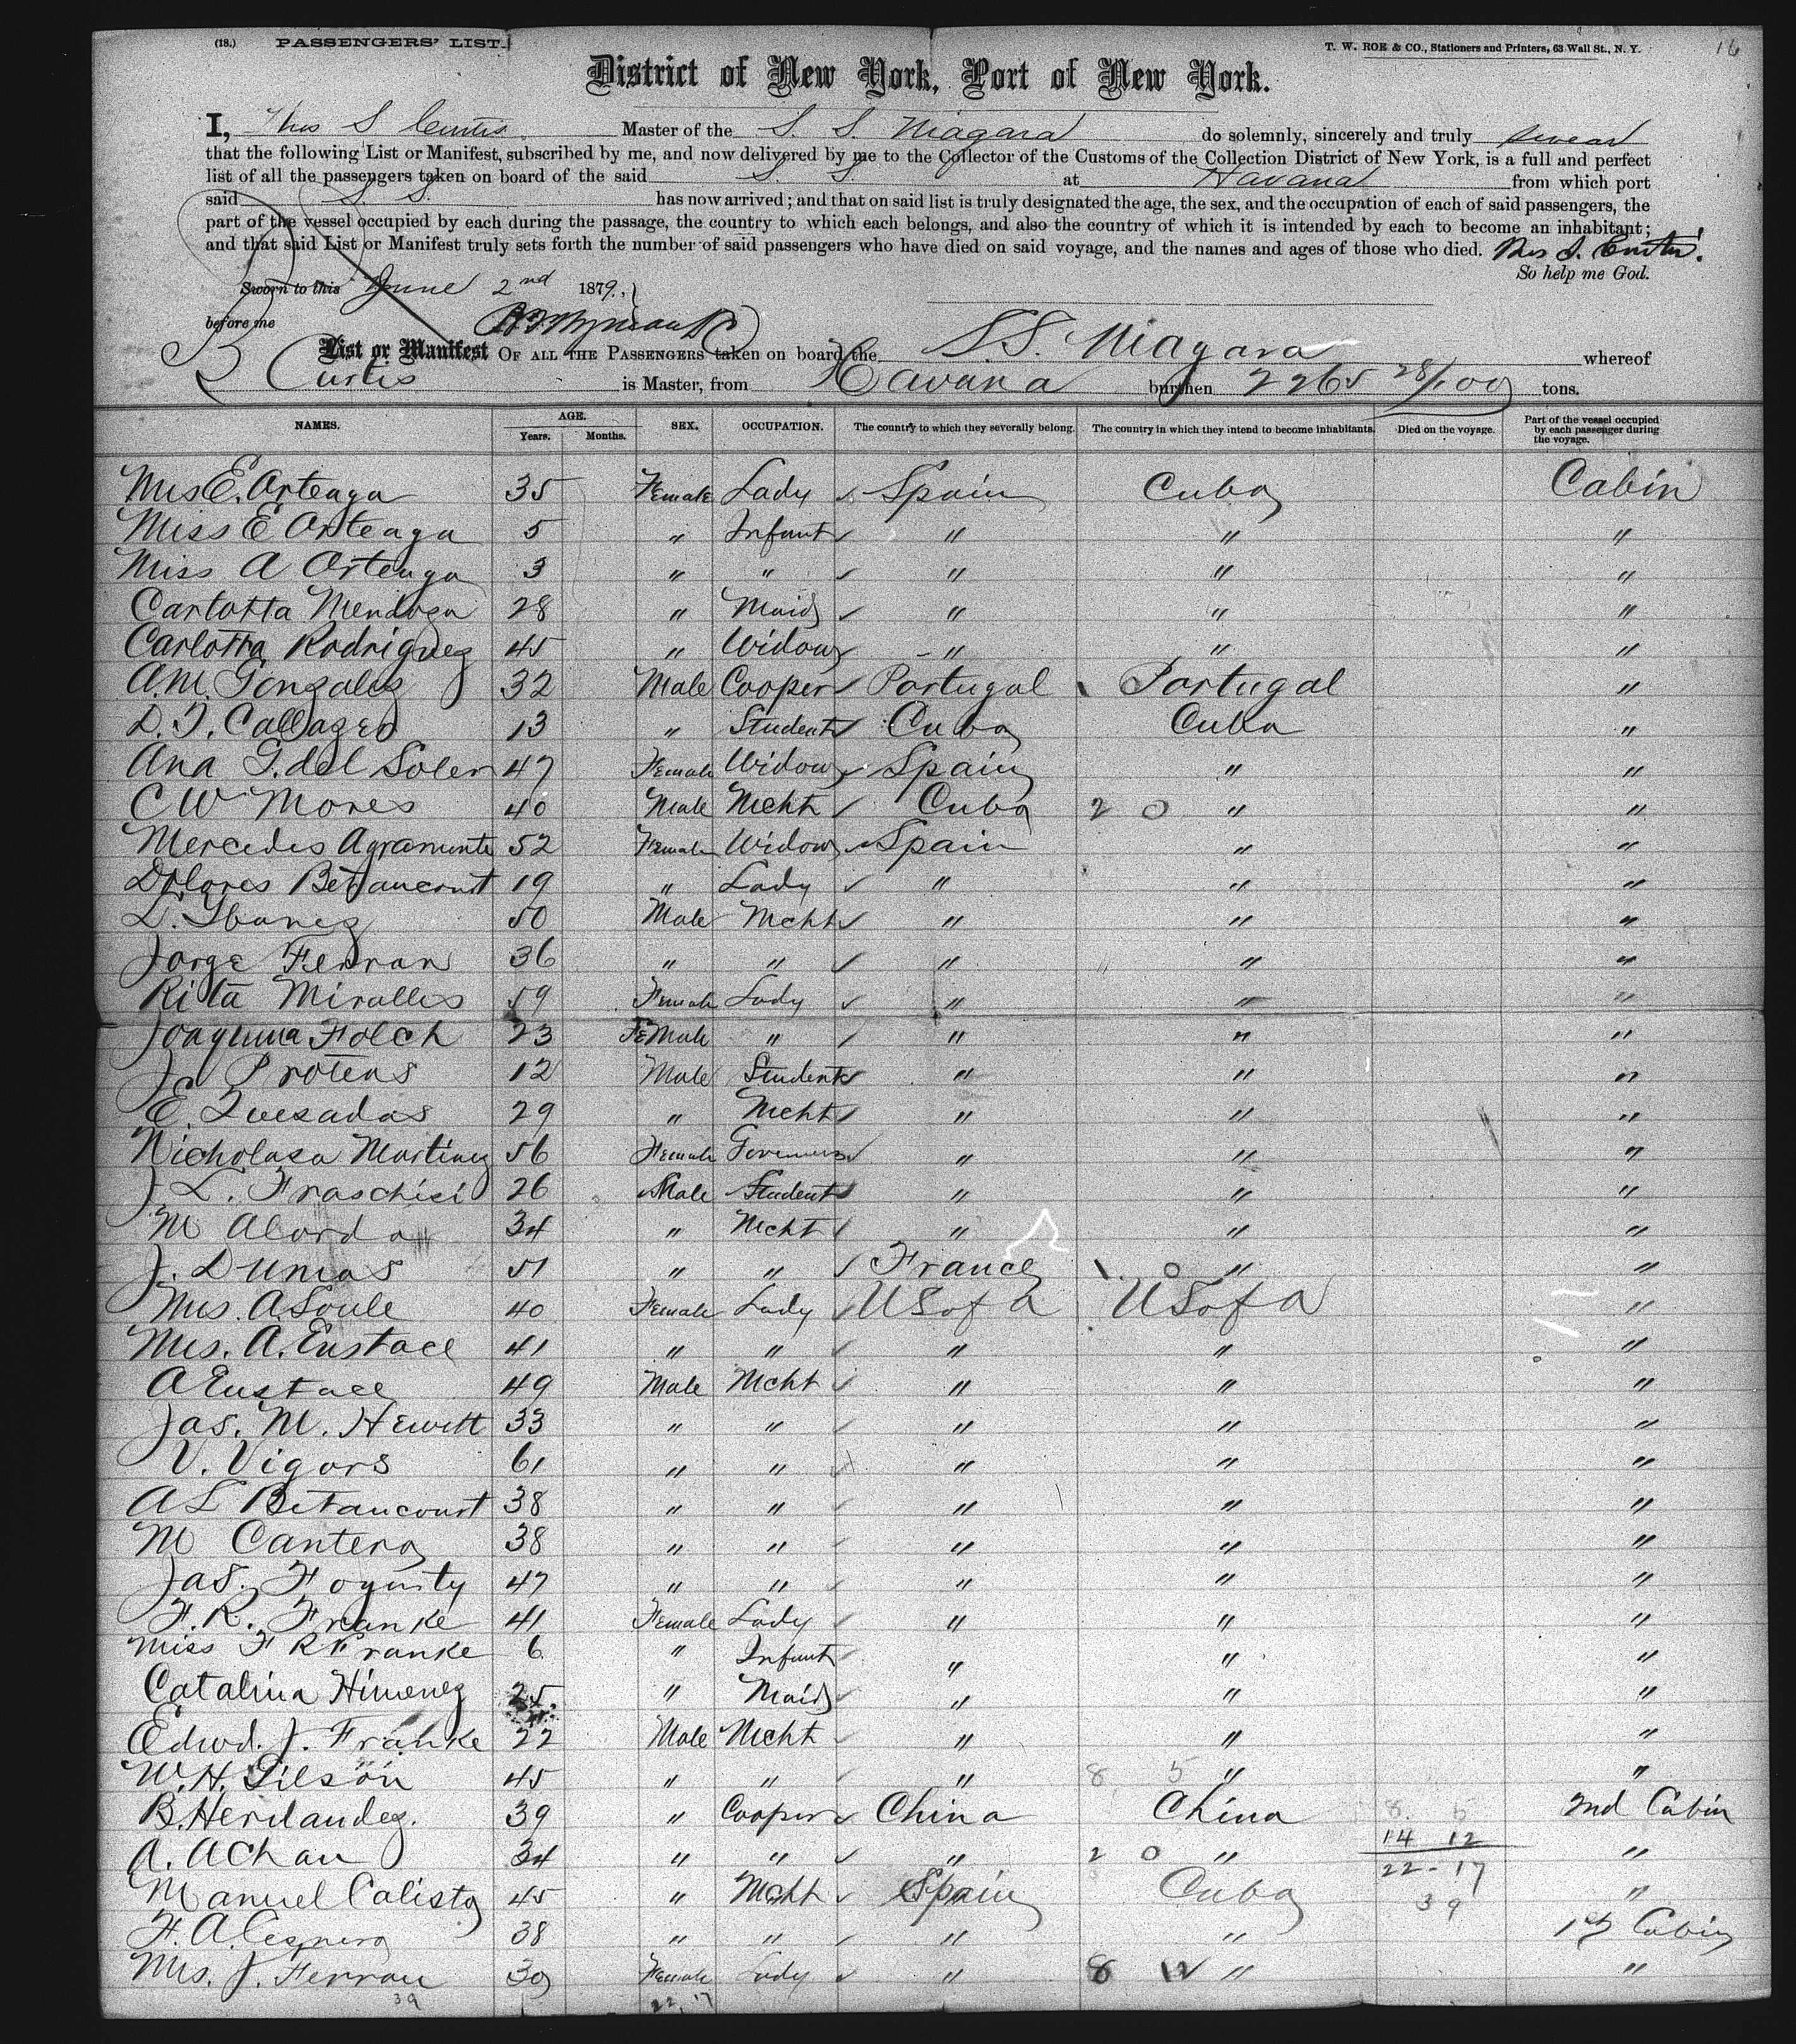 (18.) PASSENGERS' LIST.
T. W. ROE & CO., Stationers and Printers, 63 Wall St., N. Y.
16
District of New York, Port of New York.
I, Thos S Curtis Master of the S. S. Niagara do solemnly, sincerely and truly swear
that the following List or Manifest, subscribed by me, and now delivered by me to the Collector of the Customs of the Collection District of New York, is a full and perfect
list of all the passengers taken on board of the said S S at Havana from which port
said S. S. has now arrived; and that on said list is truly designated the age, the sex, and the occupation of each of said passengers, the
part of the vessel occupied by each during the passage, the country to which each belongs, and also the country of which it is intended by each to become an inhabitant;
and that said List or Manifest truly sets forth the number of said passengers who have died on said voyage, and the names and ages of those who died. Thos S. Curtis.
So help me God.
Sworn to this June 2nd 1879.,
before me
List or Manifest OF ALL THE PASSENGERS taken on board the S.S. Niagara whereof
Curtis is Master, from Havana burthen 2265 28/100 tons.
NAMES. AGE. Years. Months. SEX. OCCUPATION. The country to which they severally belong. The country in which they intend to become inhabitants. Died on the voyage. Part of the vessel occupied by each passenger during the voyage.
Mrs E. Arteaga 35 Female Lady Spain Cuba Cabin
Miss E Arteaga 5 " Infant " " "
Miss A Arteaga 3 " " " " "
Carlotta Mendoza 28 " Maid " " "
Carlotta Rodriguez 45 " Widow " " "
A.M. Gonzales 32 Male Cooper Portugal Portugal "
D. T. 13 " Student Cuba Cuba "
Ana G. del Soler 47 Female Widow Spain " "
C W Mores 40 Male Mcht Cuba 2 0 " "
Mercedes Agramonte 52 Female Widow Spain " "
Dolores Betancourt 19 " Lady " " "
L. Ibanez 50 Male Mcht " " "
Jorge Ferran 36 " " " " "
Rita Miralles 59 Female Lady " " "
Joaquina Folch 23 Female " " " "
J Proteas 12 Male Student " " "
E. Quesadas 29 " Mcht " " "
Nicholasa Martinez 56 Female Governess " " "
J L. Fraschisi 26 Male Student " " "
M Alorda 34 " Mcht " " "
J. Dumas 51 " " France 0 " "
Mrs. A. Soule 40 Female Lady U S of A U S of A "
Mrs. A. Eustace 41 " " " " "
A Eustace 49 Male Mcht " " "
Jas. M. Hewitt 33 " " " " "
V. Vigors 61 " " " " "
A L Betancourt 38 " " " " "
M Cantero 38 " " " " "
Jas. Fogarty 47 " " " " "
F. R. Franke 41 Female Lady " " "
Miss F R Franke 6 " Infant " " "
Catalina Himenez 25 " Maid " " "
Edwd. J. Franke 22 Male Mcht " " "
W. H. Gilson 45 " " " 8 5 " "
B. Hernandez. 39 " Cooper China China 8. 5 2nd Cabin
A. Achan 34 " " " 2 0 " 14 12 "
22 - 17
Manuel Calisto 45 " Mcht Spain Cuba 39 "
F. A. 38 " " " " 1st Cabin
Mrs. J. Ferran 30 Female Lady " 8 " "
39 22, 17